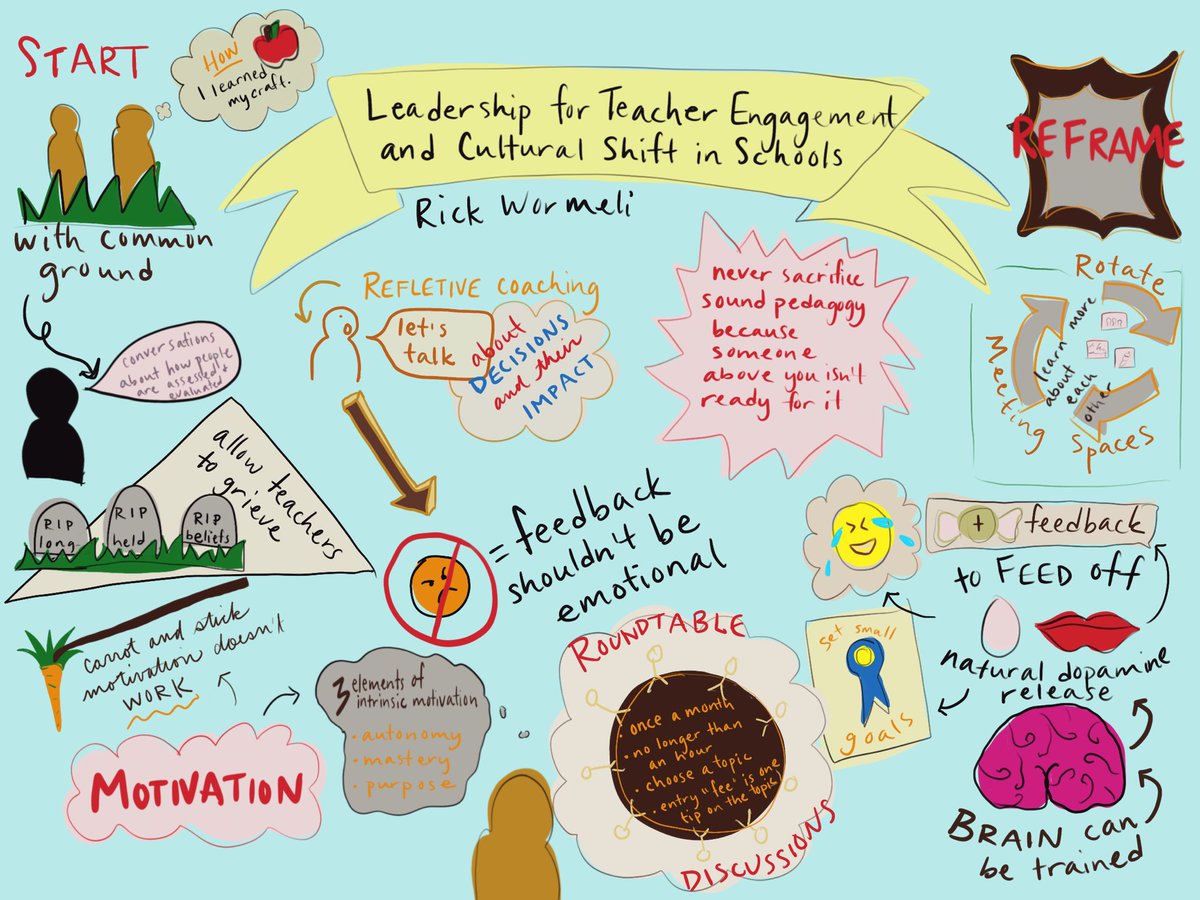 START
HOW
I learned
my craft.
with common
ground
Leadership for Teacher Engagement
and Cultural Shift in Schools
Rick Wormeli
REFRAME
conversations
about how people
are assessed +
evaluated
REFLETIVE coaching
let's
talk
about
DECISIONS
and their
IMPACT
never sacrifice
sound pedagogy
because
someone
above you isn't
ready for it
Rotate
Meeting
Spaces
learn more
about
each
other
allow teachers
to grieve
RIP
long-
RIP
held
RIP
beliefs
= feedback
shouldn't be
emotional
+ feedback
to FEED off
natural dopamine
release
set small
goals
BRAIN can
be trained
carrot and stick
motivation doesn't
WORK
MOTIVATION
3 elements of
intrinsic motivation
• autonomy
• mastery
• purpose
ROUNDTABLE
• once a month
• no longer than
an hour
• choose a topic
• entry "fee" is one
tip on the topic
DISCUSSIONS